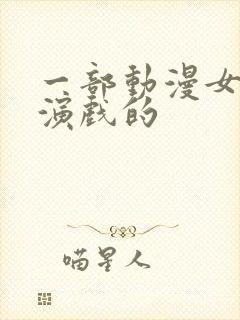 一部動漫女
演戲的
喵星人